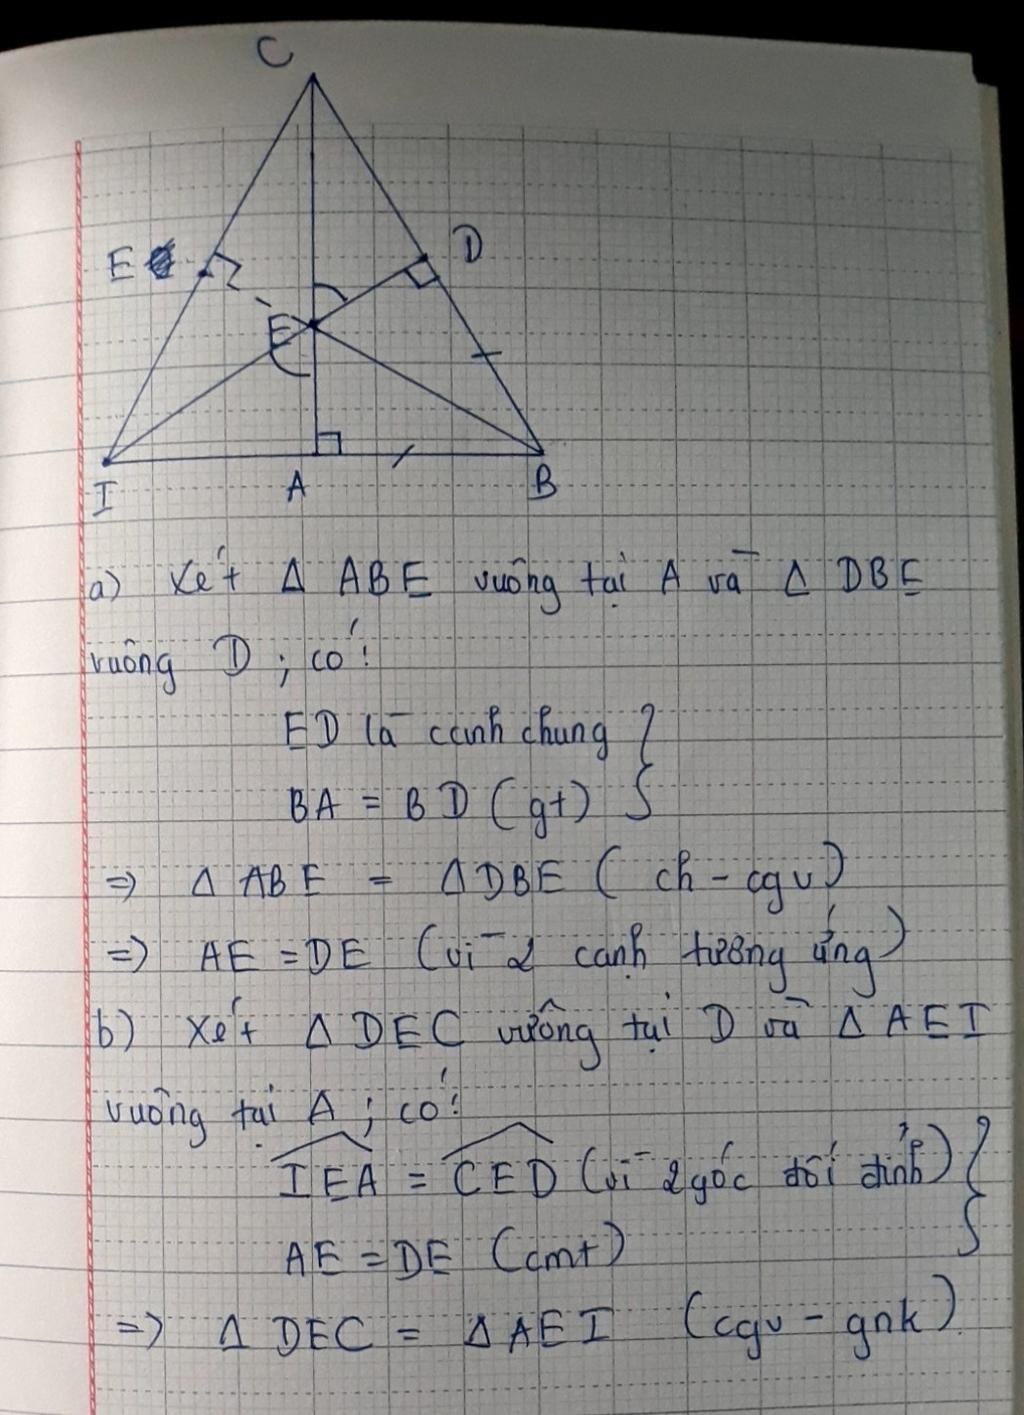 C
E
D
E
I
A
B
a) Xét Δ ABE vuông tại A và Δ DBE
vuông D ; có:
ED là cạnh chung
BA = BD (gt)
=> Δ ABE = Δ DBE ( ch - cgv)
=> AE = DE (vì 2 cạnh tương ứng)
b) Xét Δ DEC vuông tại D và Δ AEI
vuông tại A ; có:
IEA = CED (vì 2 góc đối đỉnh)
AE = DE (cmt)
=> Δ DEC = Δ AEI (cgv - gnk)